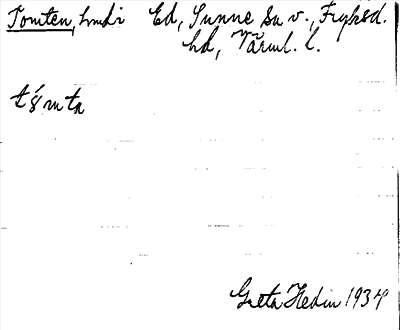 Tomten, lmdi Ed, Sunne sn v., Fryksd.
hd, Värml. l.
tómta
Greta Hedin 1934